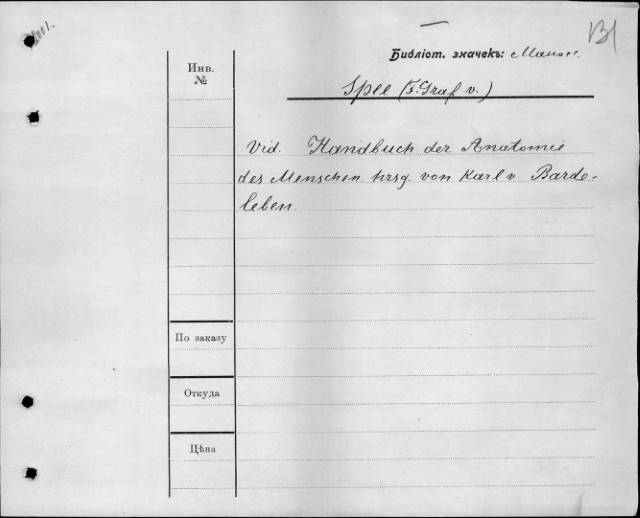 Библіот. значекъ:
Инв.
№
Spee (F. Graf v.)
Vid. Handbuch der Anatomie
des Menschen hrsg. von Karl v. Barde-
leben.
По заказу
Откуда
Цѣна